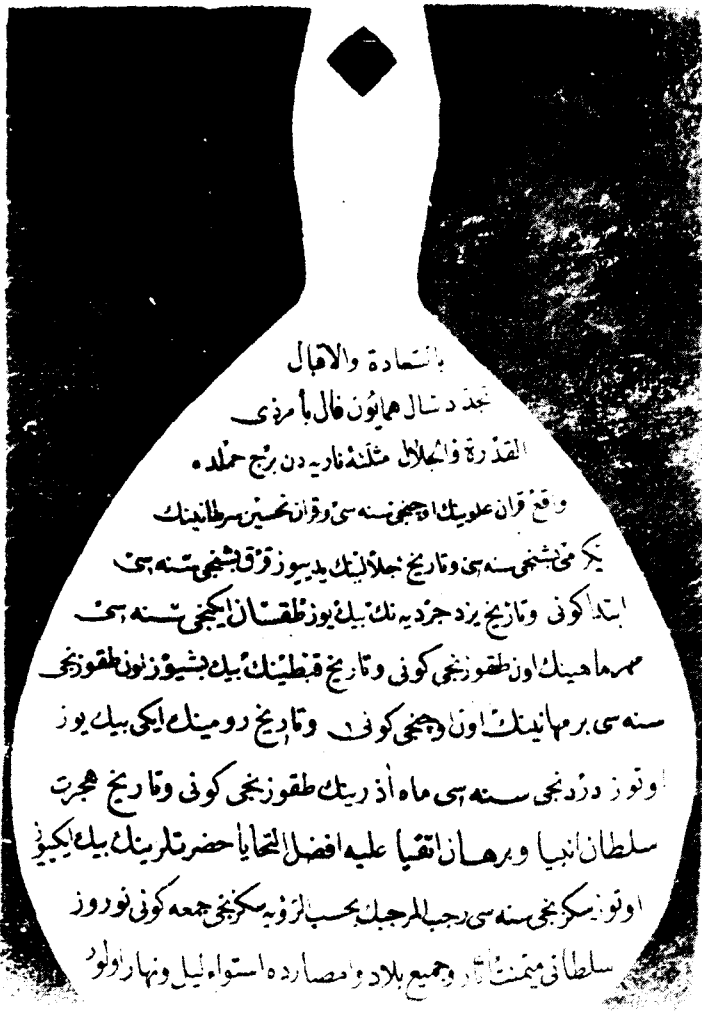 بالسعادة والاقبال
تجدد سال همايون فال بأمر ذى
القدرة والجلال مثلثهٔ ناريه دن برج حملده
واقع قران علوينك اوچنجى سنه سى وقران نحسين سرطانينك
يكرمى بشنجى سنه سى وتاريخ جلالينك يديوز قرق بشنجى سنه سى
ابتدا كونى وتاريخ يزدجرديه نك بيك يوز طقسان ايكنجى سنه سى
مهرماهينك اون طقوزنجى كونى وتاريخ قبطينك بيك بشيوز اون طقوزنجى
سنه سى برمهاتينك اون اوچنجى كونى وتاريخ رومينك ايكى بيك يوز
اوتوز دردنجى سنه سى ماه آذرينك طقوزنجى كونى وتاريخ هجرت
سلطان انبيا وبرهان اتقيا عليه افضل التحايا حضرتلرينك بيك ايكيوز
اوتوز سكزنجى سنه سى رجب المرجبك بحسب الرؤيه سكزنجى جمعه كونى نوروز
سلطانى ميمنت آثار وجميع بلاد وامصارده استواء ليل ونهار اولور